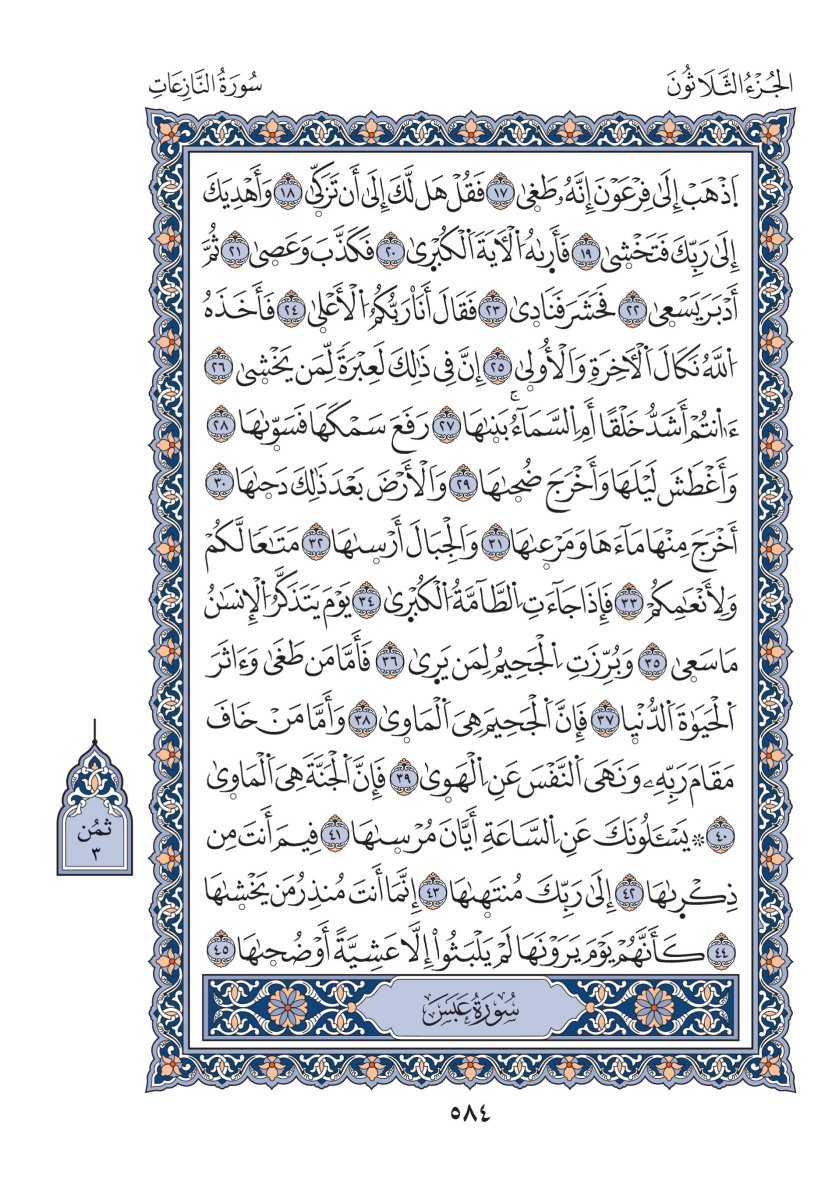 الجُزْءُ الثَّلَاثُونَ
سُورَةُ النَّازِعَاتِ
اِذْهَبْ إِلَىٰ فِرْعَوْنَ إِنَّهُۥ طَغىٰ ١٧ فَقُلْ هَل لَّكَ إِلَىٰ أَن تَزَكّىٰ ١٨ وَأَهْدِيَكَ
إِلَىٰ رَبِّكَ فَتَخْشىٰ ١٩ فَأَرىٰهُ اُلْأٓيَةَ اَلْكُبْرىٰ ٢٠ فَكَذَّبَ وَعَصىٰ ٢١ ثُمَّ
أَدْبَرَ يَسْعىٰ ٢٢ فَحَشَرَ فَنَادىٰ ٢٣ فَقَالَ أَنَا۠ رَبُّكُمُ اُلْأَعْلىٰ ٢٤ فَأَخَذَهُ
اُللَّهُ نَكَالَ اَلْأٓخِرَةِ وَالْأُولىٰ ٢٥ إِنَّ فِى ذَٰلِكَ لَعِبْرَةً لِّمَن يَخْشىٰ ٢٦
ءَا۬نتُمْ أَشَدُّ خَلْقًا أَمِ اِلسَّمَآءُۚ بَنىٰهَا ٢٧ رَفَعَ سَمْكَهَا فَسَوّىٰهَا ٢٨
وَأَغْطَشَ لَيْلَهَا وَأَخْرَجَ ضُحىٰهَا ٢٩ وَالْأَرْضَ بَعْدَ ذَٰلِكَ دَحىٰهَا ٣٠
أَخْرَجَ مِنْهَا مَآءَهَا وَمَرْعىٰهَا ٣١ وَالْجِبَالَ أَرْسىٰهَا ٣٢ مَتَٰعًا لَّكُمْ
وَلِأَنْعَٰمِكُمْ ٣٣ فَإِذَا جَآءَتِ اِلطَّآمَّةُ اُلْكُبْرىٰ ٣٤ يَوْمَ يَتَذَكَّرُ اُلْإِنسَٰنُ
مَا سَعىٰ ٣٥ وَبُرِّزَتِ اِلْجَحِيمُ لِمَن يَرىٰ ٣٦ فَأَمَّا مَن طَغَىٰ وَءَاثَرَ
اَلْحَيَوٰةَ اَلدُّنْيا ٣٧ فَإِنَّ اَلْجَحِيمَ هِىَ اَلْمَاوىٰ ٣٨ وَأَمَّا مَنْ خَافَ
مَقَامَ رَبِّهِۦ وَنَهَى اَلنَّفْسَ عَنِ اِلْهَوىٰ ٣٩ فَإِنَّ اَلْجَنَّةَ هِىَ اَلْمَاوىٰ
٤٠ ۞ يَسْـَٔلُونَكَ عَنِ اِلسَّاعَةِ أَيَّانَ مُرْسىٰهَا ٤١ فِيمَ أَنتَ مِن
ذِكْرىٰهَا ٤٢ إِلَىٰ رَبِّكَ مُنتَهىٰهَا ٤٣ إِنَّمَا أَنتَ مُنذِرُ مَن يَخْشىٰهَا
٤٤ كَأَنَّهُمْ يَوْمَ يَرَوْنَهَا لَمْ يَلْبَثُوا۟ إِلَّا عَشِيَّةً أَوْ ضُحىٰهَا ٤٥
سُورَةُ عَبَسَ
ثُمُن
٣
٥٨٤